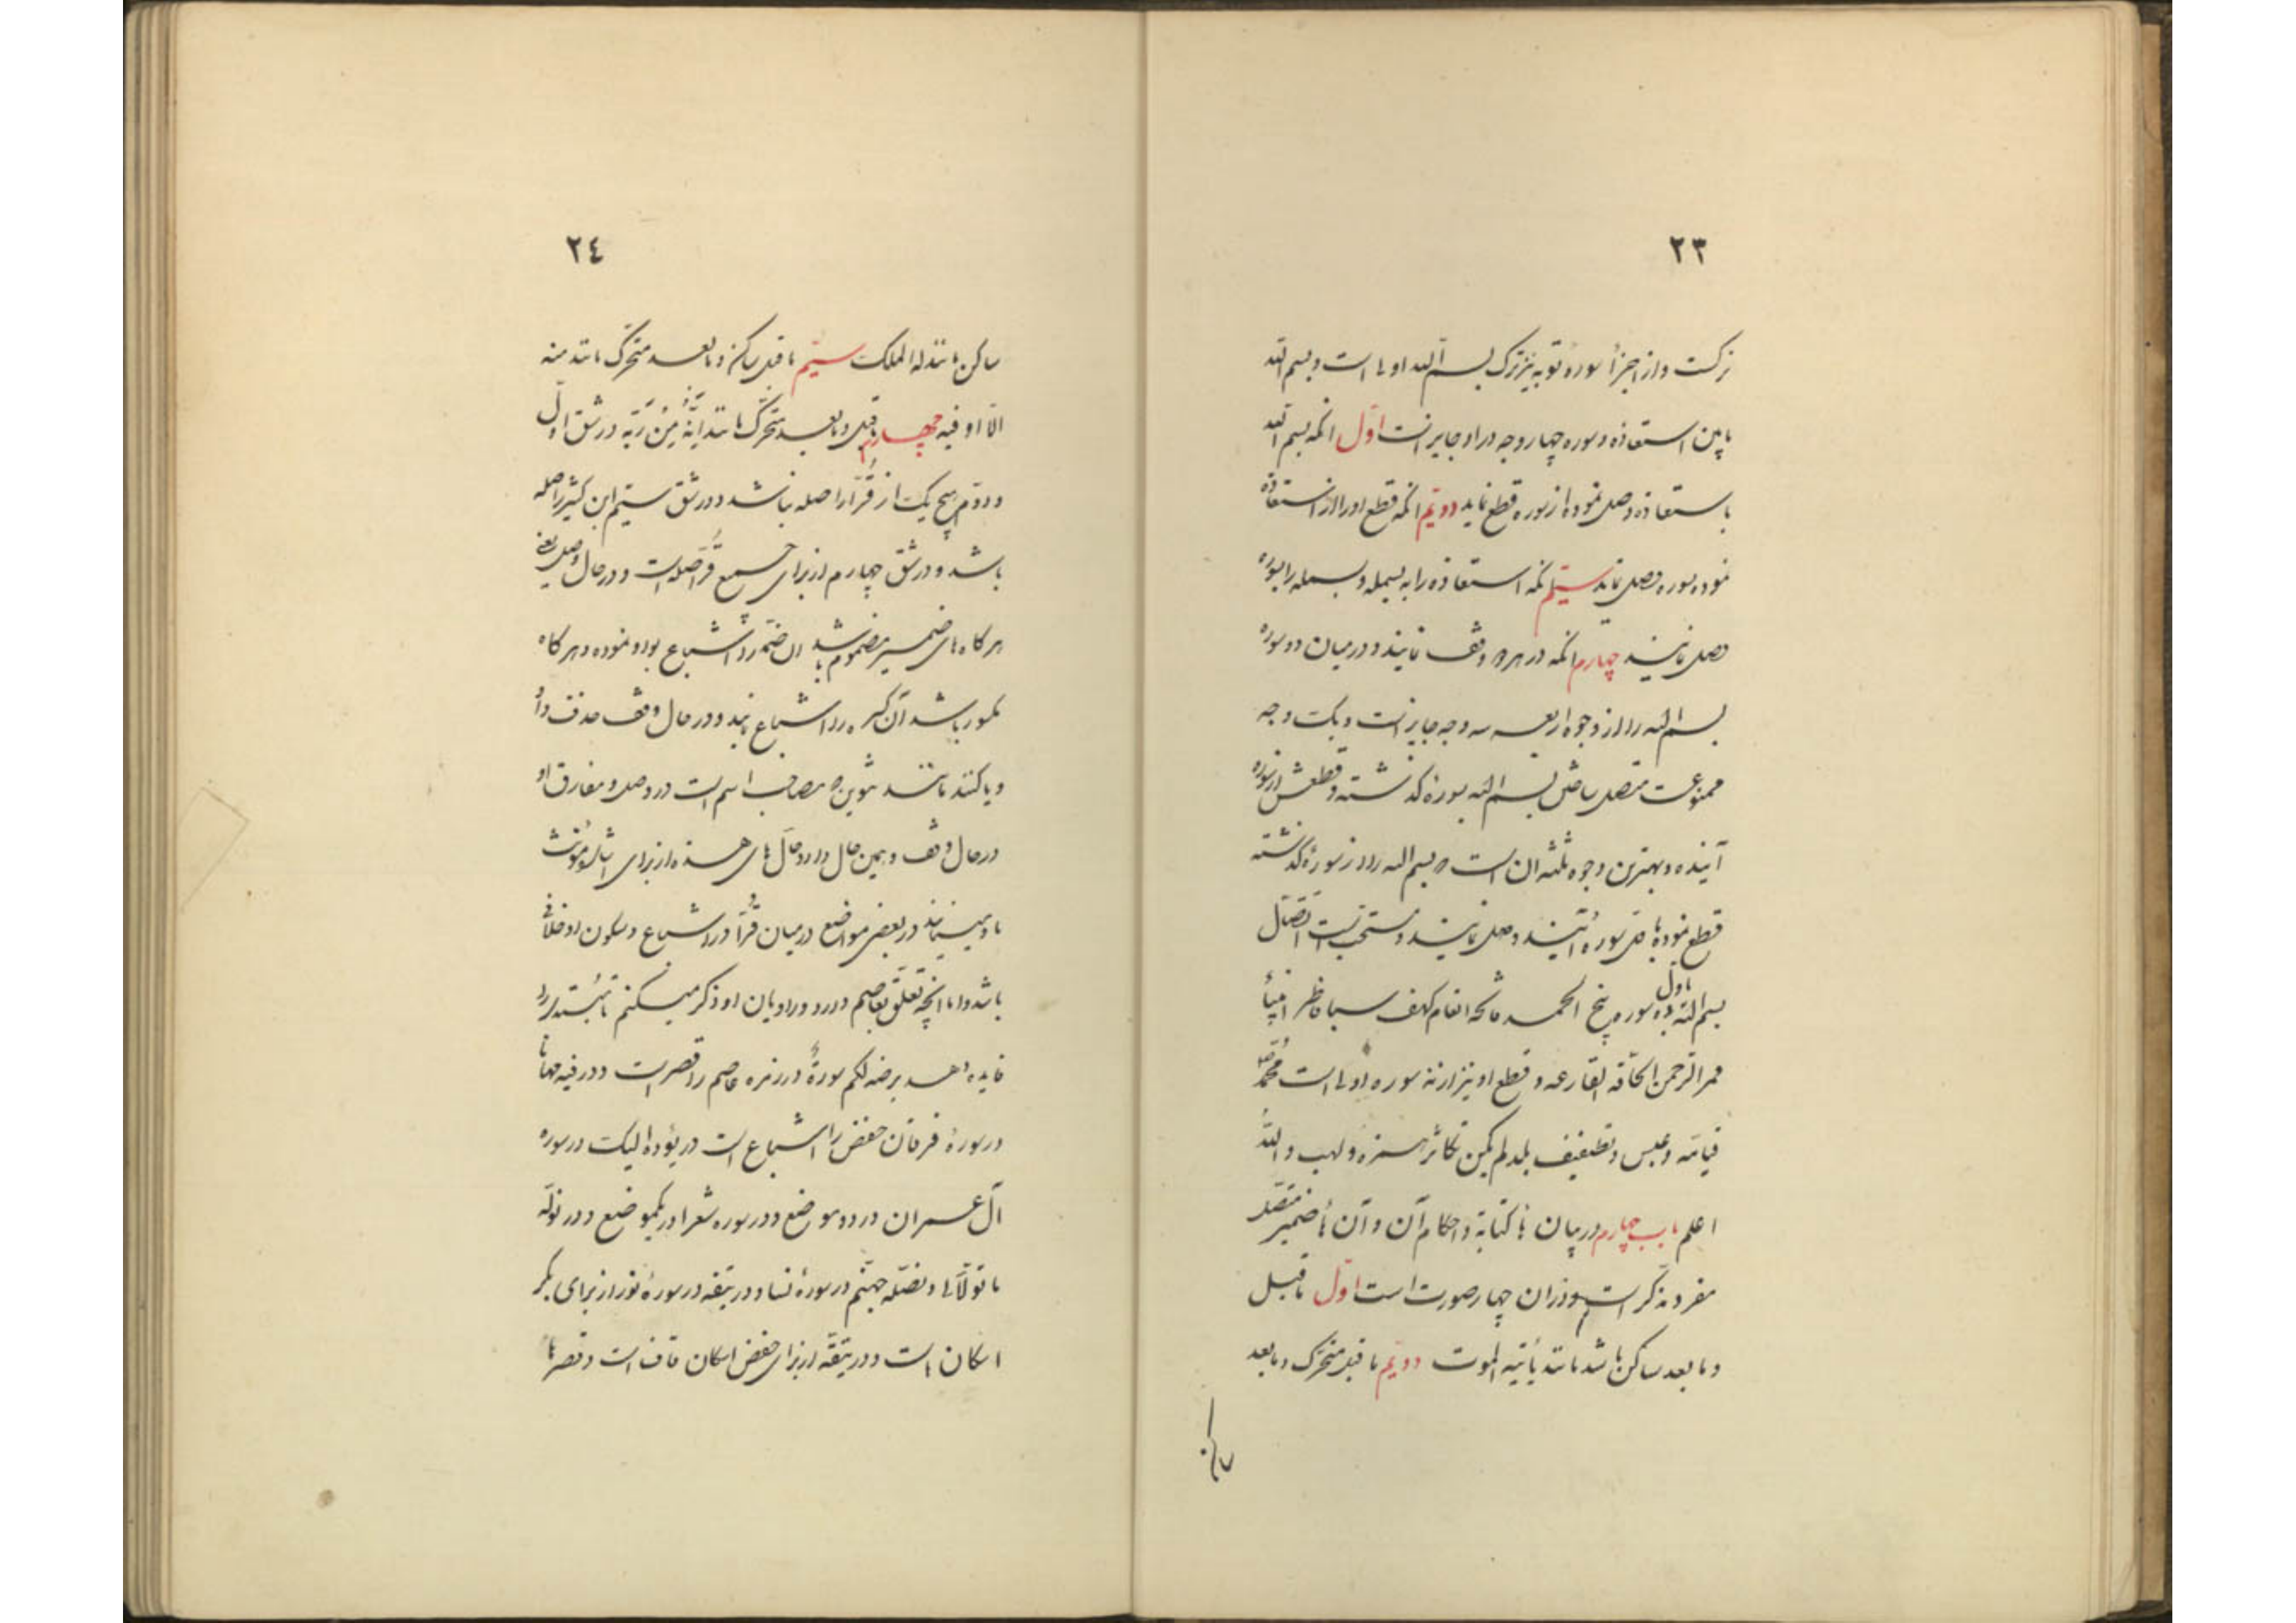 ۲۳
ترکست و از اجزأ سورهٔ توبه نیز ترک بسم الله اولی است و بسم الله
مابین استعاذه و سوره چهار وجه در او جایز است اوّل انکه بسم الله
با استعاذه وصل نموده از سوره قطع نماید دویّم انکه قطع او را از استعاذه
نموده بسوره وصل نماید سیّم انکه استعاذه را به بسمله و بسمله را بسوره
وصل نمایند چهارم انکه در هر دو وقف نمایند و در میان دو سوره
بسم الله را از وجوه اربعه سه وجه جایز است و یک وجه
ممنوعست متصل ساختن بسم الله بسورهٔ کذشته و قطعش از سورهٔ
آینده و بهترین وجوه ثلثه ان است که بسم الله را از سورهٔ کذشته
قطع نموده باوّل سورهٔ آینده وصل نمایند و مستحب است اتّصال
بسم الله باوّل سوره پنج الحمد فاتحه انعام کهف سبا فاطر انبیأ
قمر الرّحمن الحاقّه القارعه و قطع او نیز از نه سوره اولی است محمّد
قیامه و عبس و تطفیف بلد لم یکن تکاثر همزه و لهب و الله
اعلم باب چهارم در بیان هأ کنایة و احکام آن و آن هأ ضمیر متصل
مفرد مذکر است و در ان چهار صورت است اوّل ماقبل
و مابعد ساکن باشد مانند یأتیه الموت دویّم ماقبل متحرّک و مابعد
ساکن
۲٤
ساکن مانند له الملک سیّم ماقبل ساکن و مابعد متحرّک مانند منه
الّا او فیه چهارم ماقبل و مابعد متحرّک مانند انّهُ مِنْ رَبّه در شق اوّل
و دوّم هیچ یک از قُرّأ را صله نباشد و در شق سیّم ابن کثیر را صله
باشد و در شق چهارم از برای جمیع قُرّأ صله است و در حال وصل یعنی
هر کاه های ضمیر مضموم باشد ان ضمّه را اشباع بواو نموده و هر کاه
مکسور باشد آن کسره را اشباع نمایند و در حال وقف حذف واو
و یا کنند مانند تنوین که مصاحب اسم است در وصل و مفارق او
در حال وقف و همین حال دارد حال های هذه از برای
در بعضی مواضع در میان قُرّأ در اشباع و سکون او خلافی
باشد و اما انچه تعلّق بعاصم دارد و راویان او ذکر میکنم تا مبتدی را
فایده دهد یرضه لکم سورةٔ در زمره عاصم را قصر است و در فیه مهانا
در سورهٔ فرقان حفص را اشباع است در یؤده الیک در سوره
آل عمران در دو موضع و در سوره شعرا در یکموضع و در نولّه
ما تولّی و نصله جهنّم در سورهٔ نسا و در یتّقه در سورهٔ نور از برای بکر
اسکان است و در یتّقه از برای حفص اسکان قاف است و قصر ها